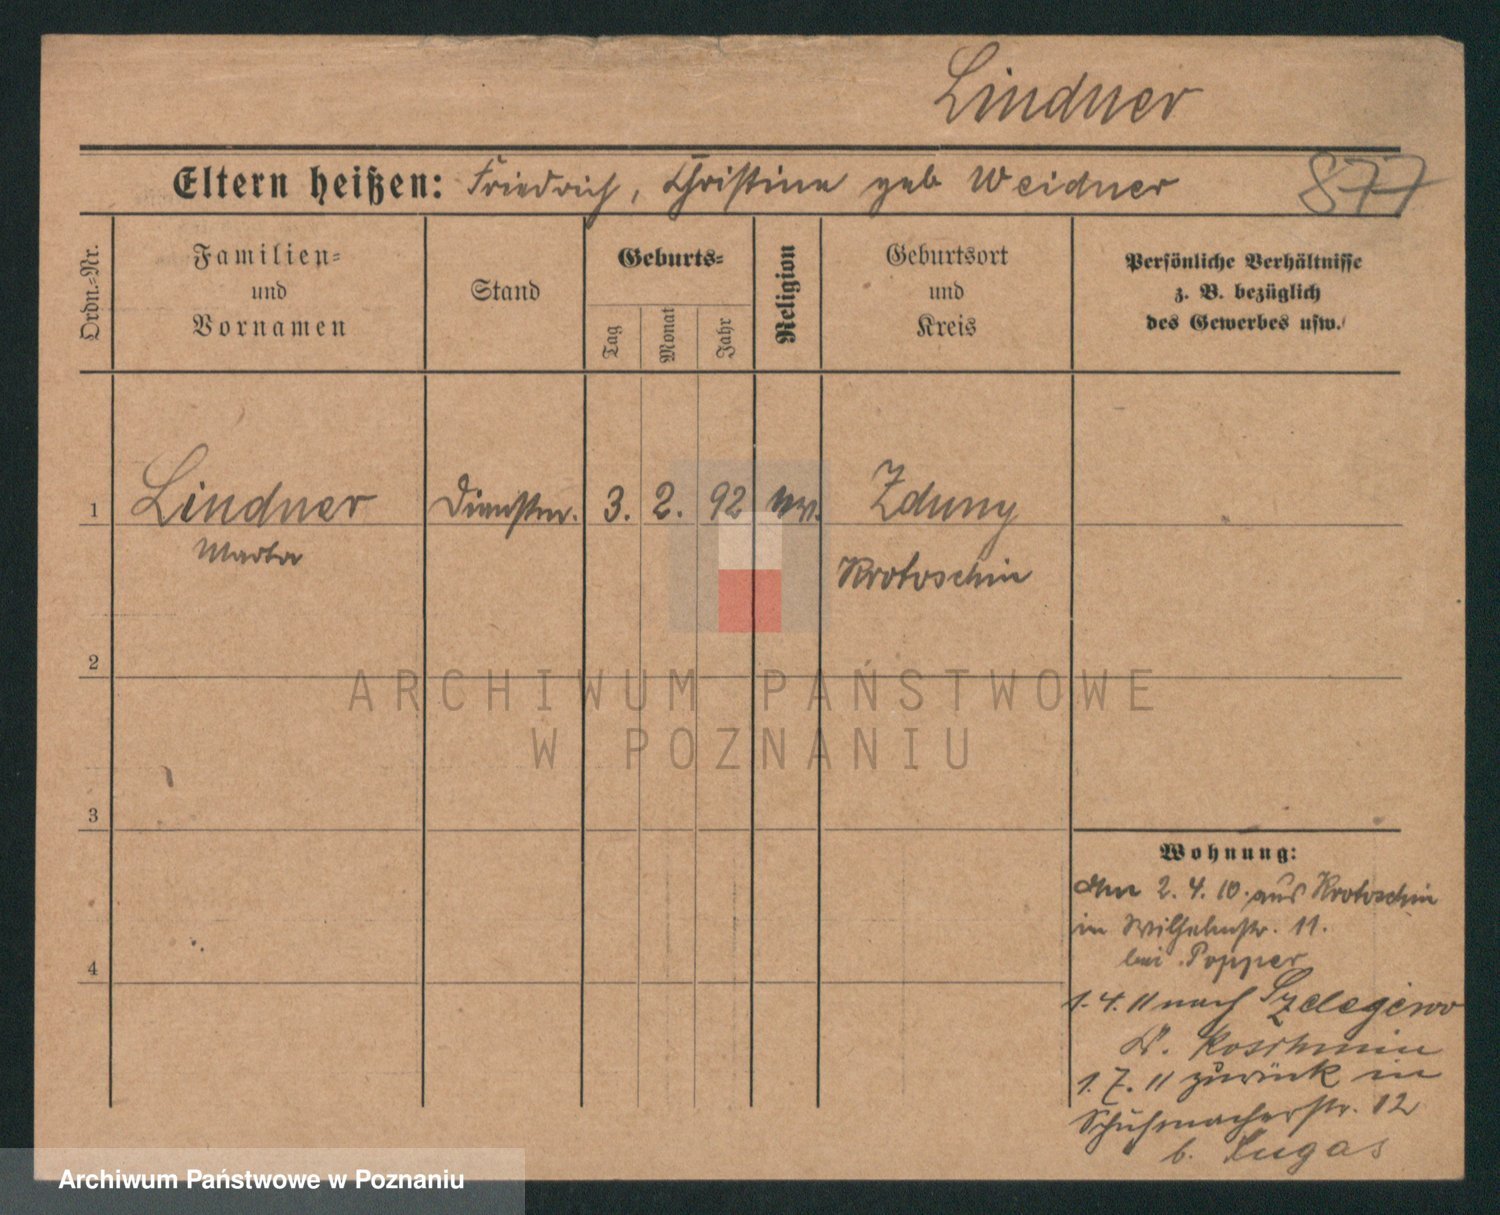 Lindner
Eltern heißen: Friedrich, Christine geb Weidner
877
Ordn.=Nr.
Familien=
und
Vornamen
Stand
Geburts=
Tag
Monat
Jahr
Religion
Geburtsort
und
Kreis
Persönliche Verhältnisse
z. B. bezüglich
des Gewerbes usw.
1 Lindner Dienstm. 3. 2. 92 ev. Zduny
Marta
Krotoschin
2
ARCHIWUM PAŃSTWOWE
W POZNANIU
3
Wohnung:
2. 4. 10. aus Krotoschin
in Wilhelmstr. 11.
bei Popper
4
1. 4. 11 nach
K. Koschmin
1. 7. 11 zurück in
Schuhmacherstr. 12
b. Lugas
Archiwum Państwowe w Poznaniu